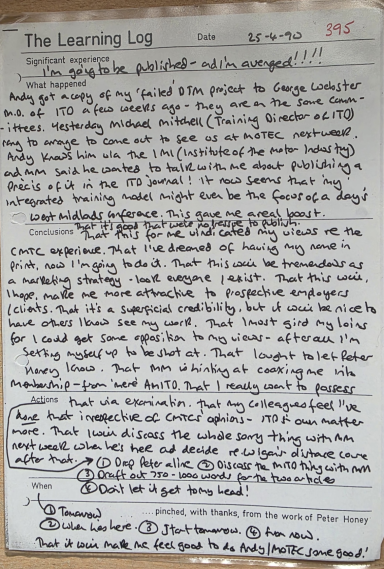 395
The Learning Log Date 25-4-90
Significant experience
I'm going to be published - and I'm avenged!!!!
What happened
Andy got a copy of my 'failed' DTM project to George Webster
M.D. of ITO a few weeks ago - they are on the same comm-
ittees. Yesterday Michael Mitchell (Training Director of ITO)
rang to arrange to come out to see us at MOTEC next week.
Andy knows him via the IMI (Institute of the Motor Industry)
and MM said he wanted to talk with me about publishing a
precis of it in the ITO journal! It now seems that my
integrated training model might even be the focus of a day's
West Midlands Conference. This gave me a real boost.
That it's good that were no to publish.
Conclusions That this for me vindicated my views re the
CMTC experience. That I've dreamed of having my name in
print, now I'm going to do it. That this will be tremendous as
a marketing strategy - look everyone I exist. That this will,
I hope, make me more attractive to prospective employers
/clients. That it's a superficial credibility, but it will be nice to
have others I know see my work. That I must gird my loins
for I could get some opposition to my views - after all I'm
setting myself up to be shot at. That I ought to let Peter
Honey know. That MM is hinting at coaxing me into
Membership - from 'mere' AMITD. That I really want to possess
Actions that via examination. That my colleagues feel I've
done that irrespective of CMTC's opinions - ITD's own matter
more. That I will discuss the whole sorry thing with MM
next week when he's here and decide re Wigan's distance course
after that. → ① Drop Peter a line ② Discuss the MITD thing with MM
③ Draft out 750-1000 words for the two articles
④ Don't let it get to my head!
When
① Tomorrow ....pinched, with thanks, from the work of Peter Honey
② When he's here. ③ Start tomorrow. ④ From now.
That it will make me feel good to do Andy/MOTEC some good!